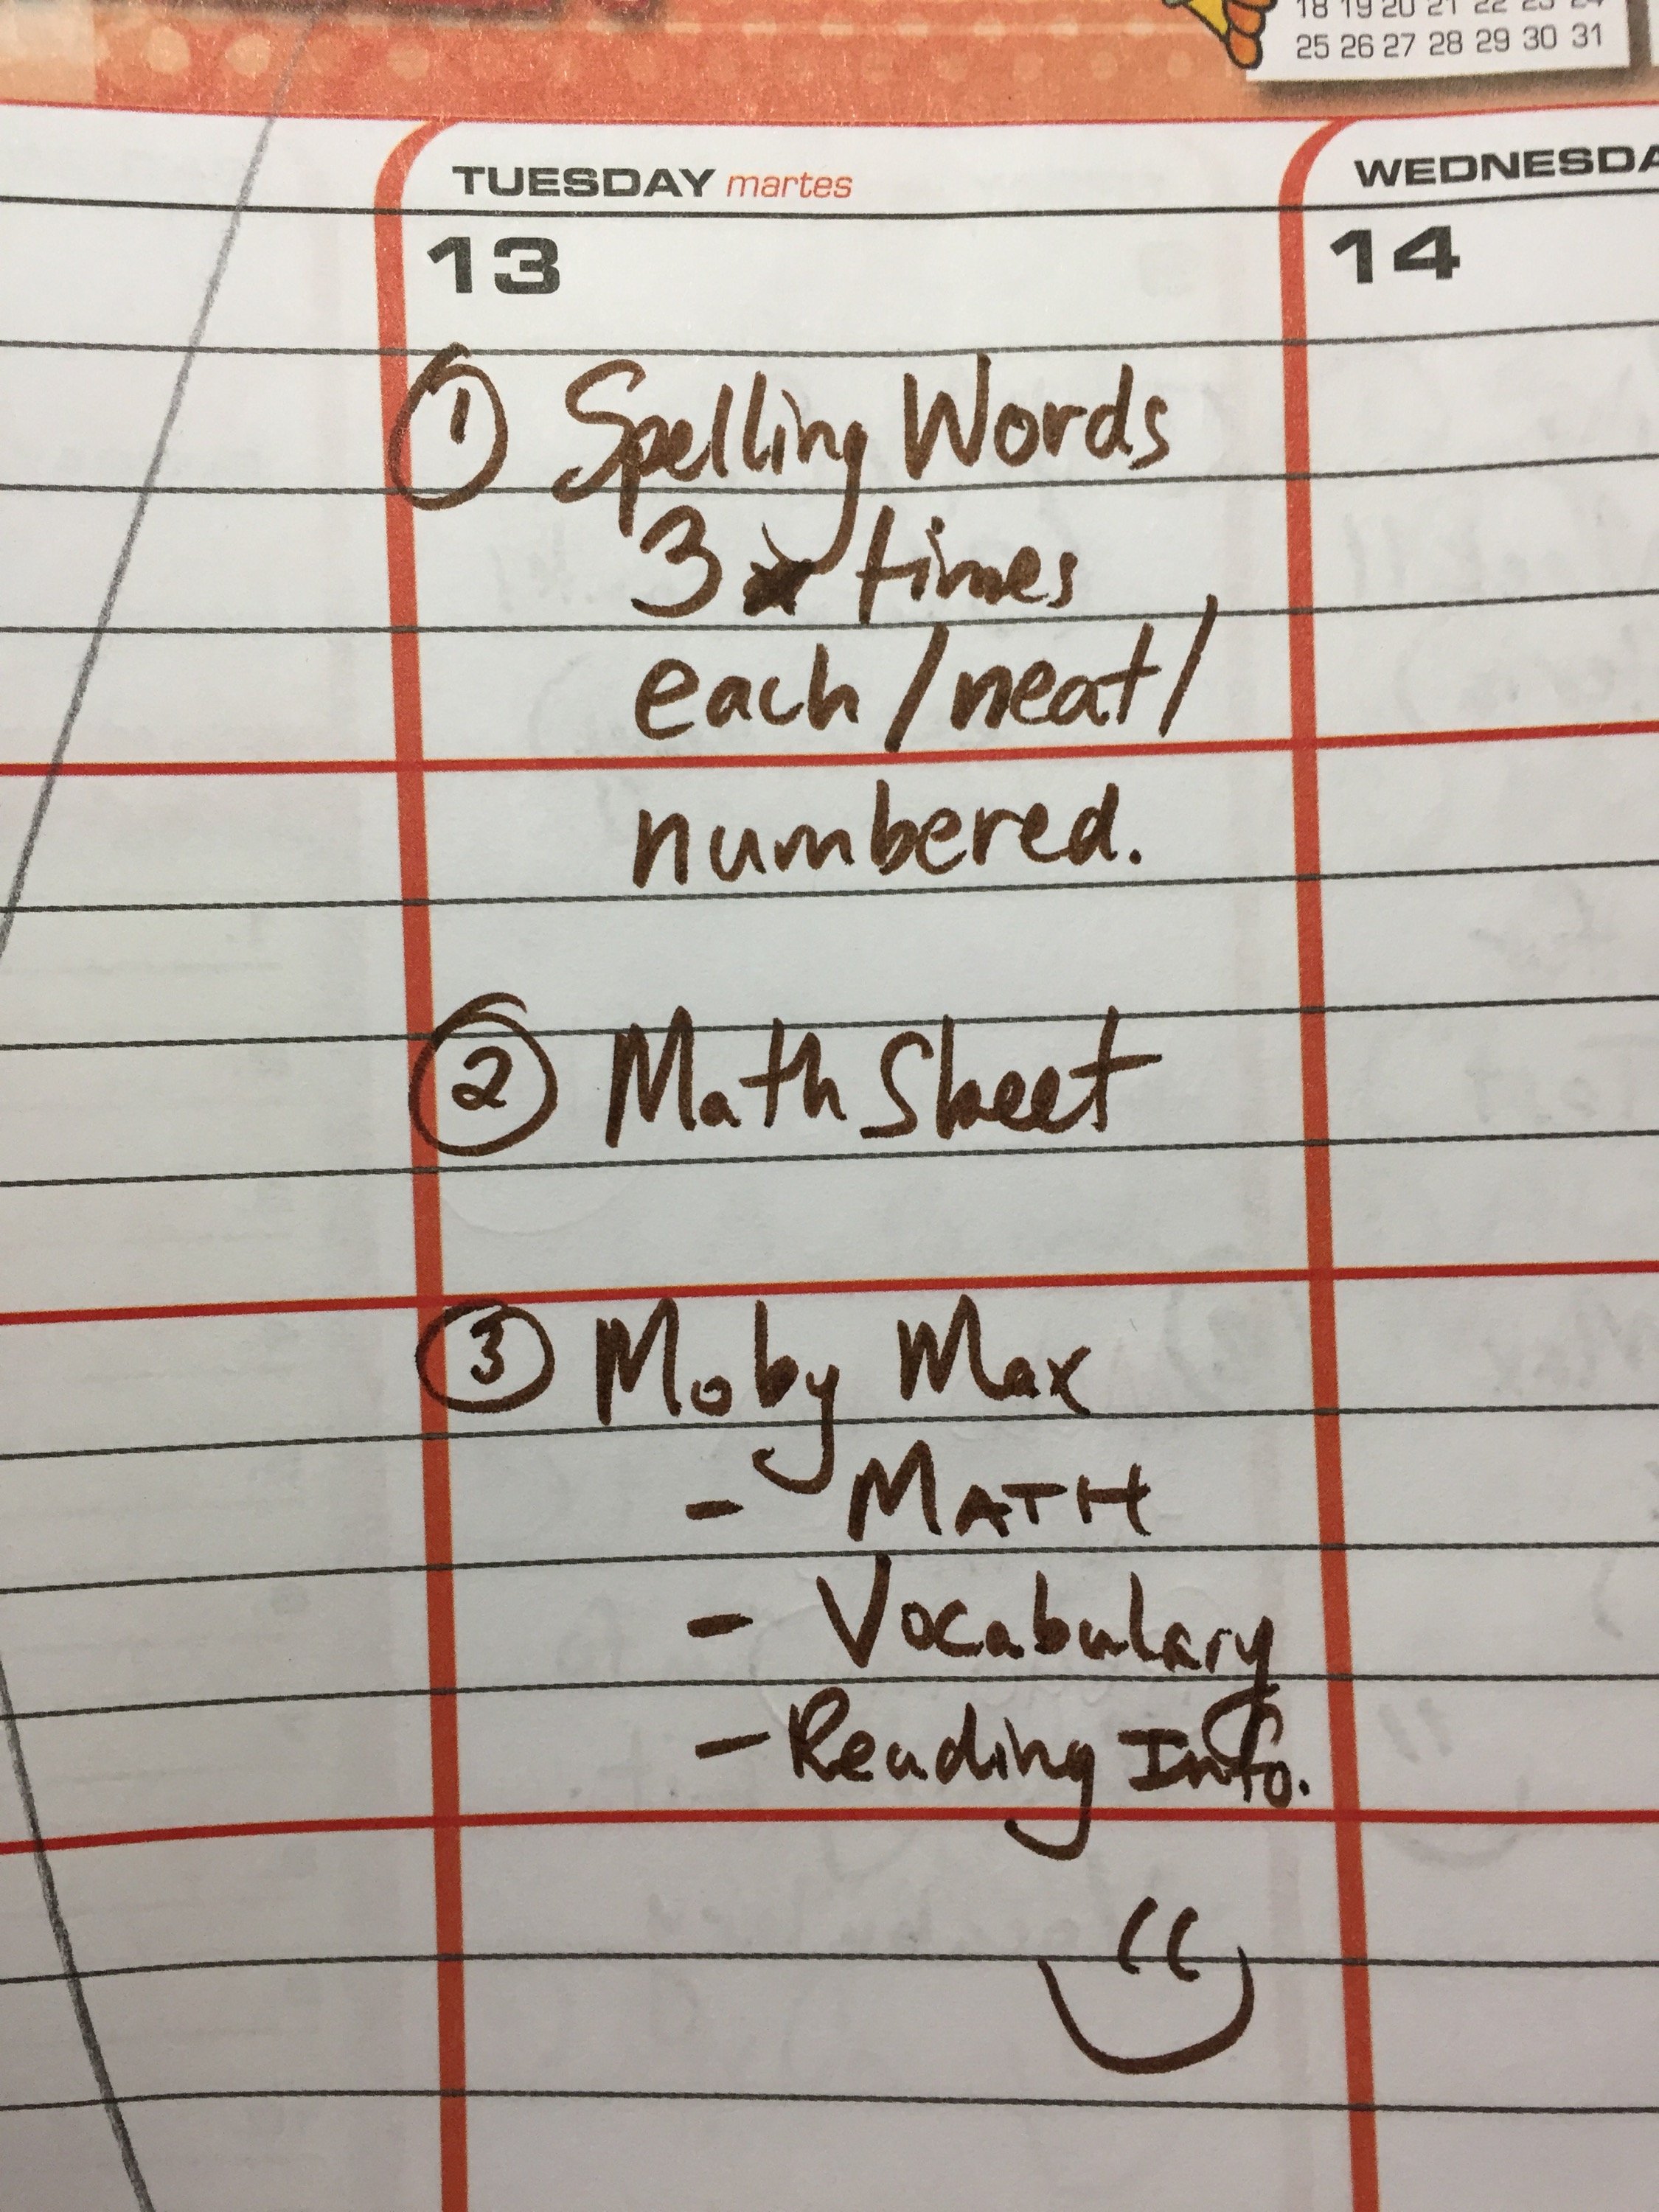 18 19 20 21 22 23 24
25 26 27 28 29 30 31
TUESDAY martes
WEDNESDA
13
14
1 Spelling Words
3 times
each/neat/
numbered.
2 Math Sheet
3 Moby Max
- MATH
- Vocabulary
- Reading Info.